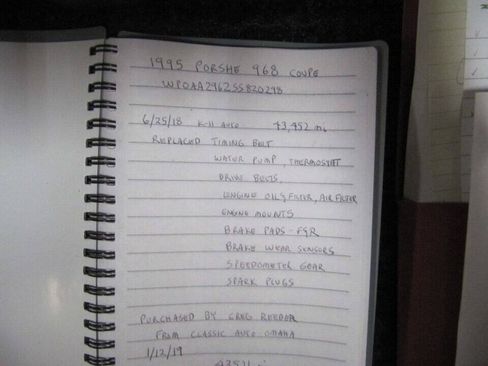 1995 PORSHE 968 COUPE
WPOAA296ZSS820298
6/25/18 K-II AUTO 43,452 mi
REPLACED TIMING BELT
WATER PUMP, THERMOSTET
DRIVE BELTS
ENGINE OIL & FILTER, AIR FILTER
ENGINE MOUNTS
BRAKE PADS - F&R
BRAKE WEAR SENSORS
SPEEDOMETER GEAR
SPARK PLUGS
PURCHASED BY GREG REEDER
FROM CLASSIC AUTO OMAHA
1/12/19